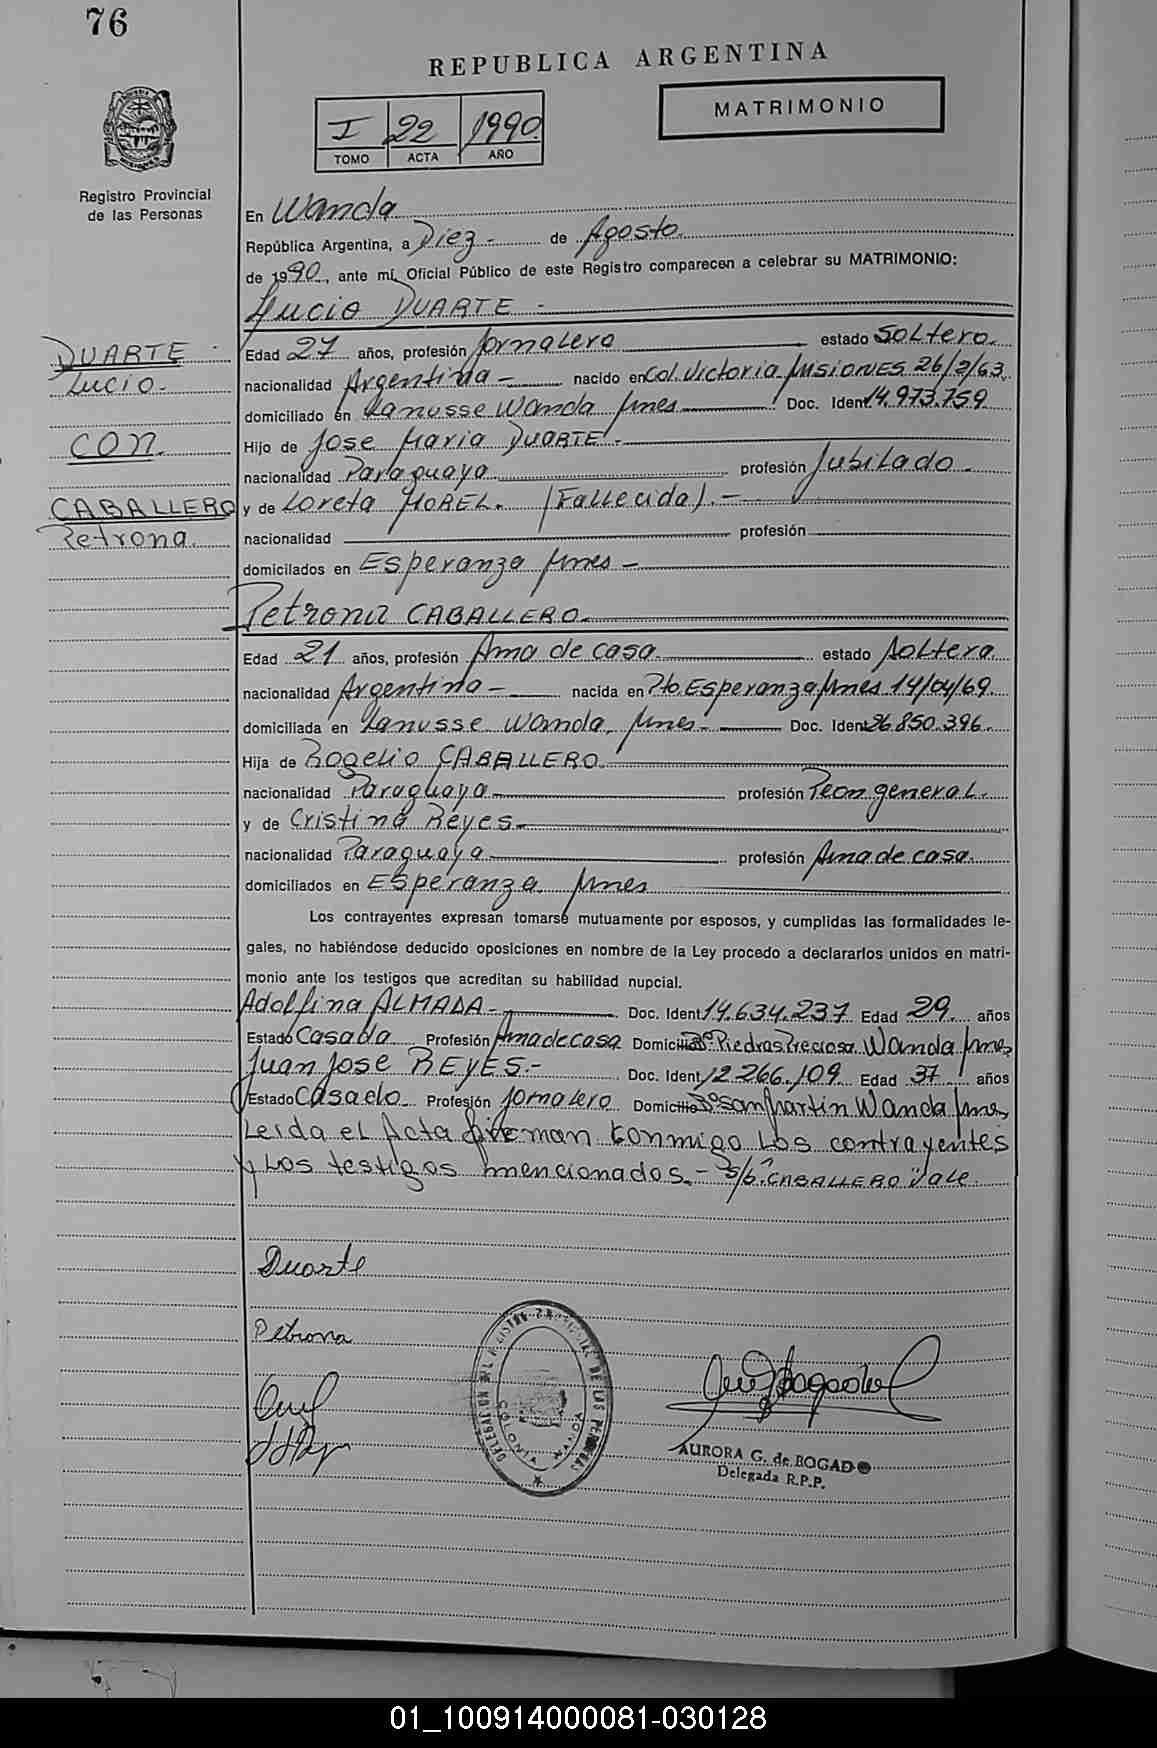 76
REPUBLICA ARGENTINA
MATRIMONIO
I 22 1990
TOMO ACTA AÑO
Registro Provincial
de las Personas
En Wanda
República Argentina, a Diez - de Agosto.
de 1990., ante mí, Oficial Público de este Registro comparecen a celebrar su MATRIMONIO:
Lucio DUARTE -
DUARTE -
Lucio.
CON.
CABALLERO
Petrona.
Edad 27 años, profesión Jornalero estado Soltero.
nacionalidad Argentina - nacido en Col. Victoria Misiones 26/2/63.
domiciliado en Lanusse Wanda Mnes Doc. Ident. 14.973.759
Hijo de Jose Maria DUARTE.
nacionalidad Paraguaya profesión Jubilado.
y de Loreta MOREL. (Fallecida). -
nacionalidad profesión
domicilados en Esperanza Mnes -
Petrona CABALLERO.
Edad 21 años, profesión Ama de casa. estado Soltera
nacionalidad Argentina - nacida en Pto. Esperanza Mnes 14/04/69.
domiciliada en Lanusse Wanda, Mnes. - Doc. Ident. 26.850.396.
Hija de Rogelio CABALLERO.
nacionalidad Paraguaya profesión Peon general.
y de Cristina Reyes -
nacionalidad Paraguaya profesión Ama de casa.
domiciliados en Esperanza Mnes
Los contrayentes expresan tomarse mutuamente por esposos, y cumplidas las formalidades le-
gales, no habiéndose deducido oposiciones en nombre de la Ley procedo a declararlos unidos en matri-
monio ante los testigos que acreditan su habilidad nupcial.
Adolfina ALMADA - Doc. Ident. 14.634.237 Edad 29 años
Estado Casada Profesión Ama de casa Domicilio Bº Piedras Preciosa Wanda Mnes
Juan Jose REYES. - Doc. Ident. 12.266.109 Edad 37 años
Estado Casado. Profesión Jornalero Domicilio Bº San Martin Wanda Mnes
Leida el Acta firman conmigo los contrayentes
y los testigos mencionados. - S/b. "CABALLERO" Vale.
Duarte
Petrona
DELEGACION DEL REGISTRO PROVINCIAL DE LAS PERSONAS
WANDA
MISIONES
AURORA G. de BOGADO
Delegada R.P.P.
01_100914000081-030128